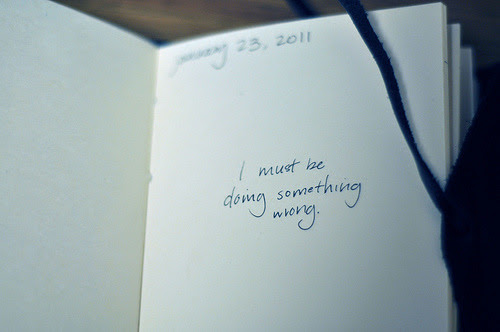 january 23, 2011
I must be
doing something
wrong.